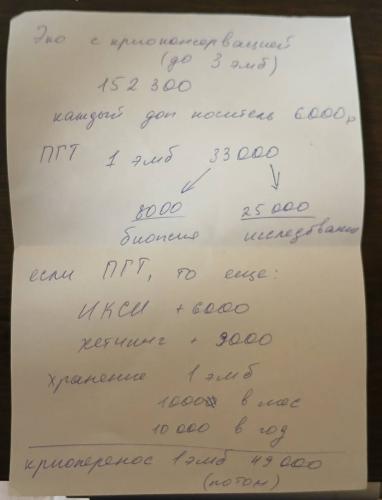 Эко с криоконсервацией
(до 3 эмб)
152 300
каждый доп носитель 6000р
ПГТ 1 эмб 33000
8000 25000
биопсия исследование
если ПГТ, то еще:
ИКСИ + 6000
хетчинг + 9000
хранение 1 эмб
1000 в мес
10 000 в год
криоперенос 1 эмб 49 000
(потом)